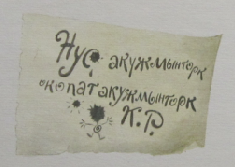 Нус акужмынторк
окопатакужмынторк
К.Р.